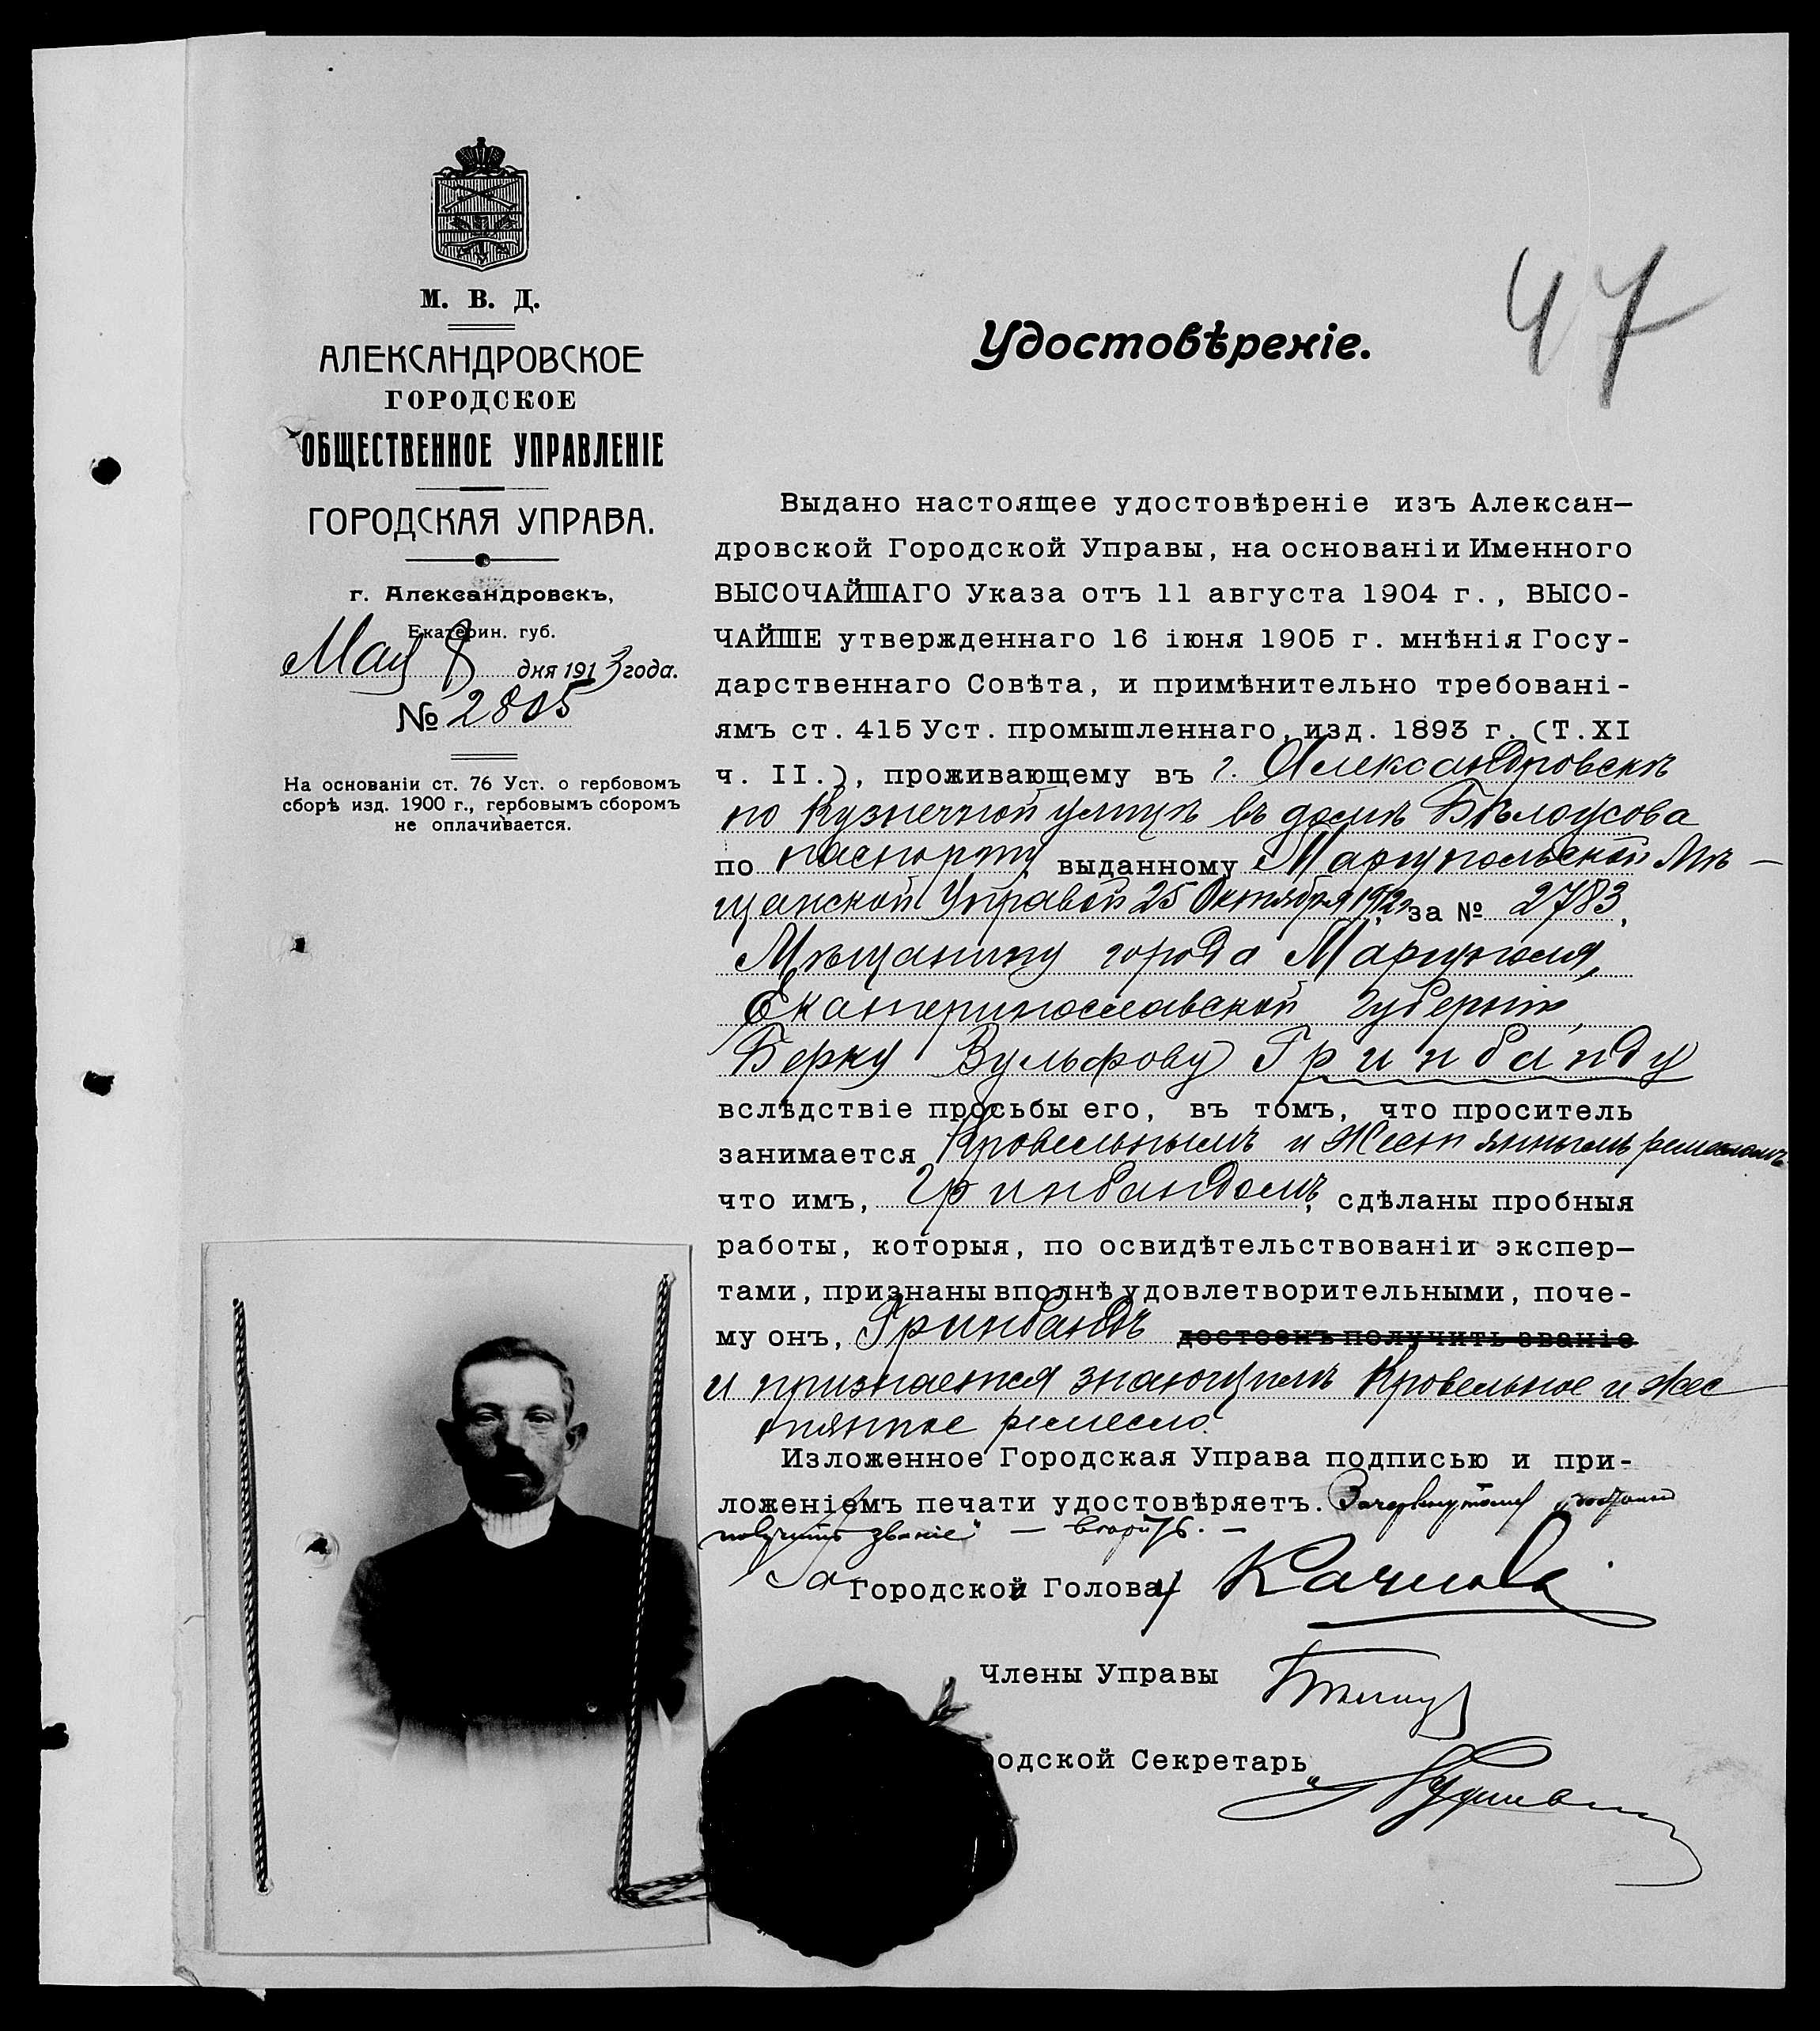 М. В. Д.
АЛЕКСАНДРОВСКОЕ
ГОРОДСКОЕ
ОБЩЕСТВЕННОЕ УПРАВЛЕНІЕ
ГОРОДСКАЯ УПРАВА.
г. Александровскъ,
Екатерин. губ.
Мая 8 дня 1913 года.
№ 2805
На основаніи ст. 76 Уст. о гербовомъ
сборѣ изд. 1900 г., гербовымъ сборомъ
не оплачивается.
47
Удостовѣреніе.
Выдано настоящее удостовѣреніе изъ Алексан-
дровской Городской Управы, на основаніи Именного
ВЫСОЧАЙШАГО Указа отъ 11 августа 1904 г., ВЫСО-
ЧАЙШЕ утвержденнаго 16 іюня 1905 г. мнѣнія Госу-
дарственнаго Совѣта, и примѣнительно требовані-
ямъ ст. 415 Уст. промышленнаго, изд. 1893 г. (Т. XI
ч. II.), проживающему въ г. Александровскѣ
по Кузнечной улицѣ въ домѣ Бѣлоусова
по паспорту, выданному Маріупольской Мѣ-
щанской Управой 25 Октября 1912 г. за № 2783,
Мѣщанину города Маріуполя,
Екатеринославской губерніи,
Берку Вульфову Гринбанду
вслѣдствіе просьбы его, въ томъ, что проситель
занимается Кровельнымъ и Жестянымъ ремесломъ
что имъ, Гринбандомъ, сдѣланы пробныя
работы, которыя, по освидѣтельствованіи экспер-
тами, признаны вполнѣ удовлетворительными, поче-
му онъ, Гринбандъ достоенъ получить званіе
и признается знающимъ Кровельное и Жес
тяное ремесло.
Изложенное Городская Управа подписью и при-
ложеніемъ печати удостовѣряетъ. Зачеркнутому „достоенъ
получить званіе" — не вѣрить. —
За Городской Голова
Члены Управы
одской Секретарь